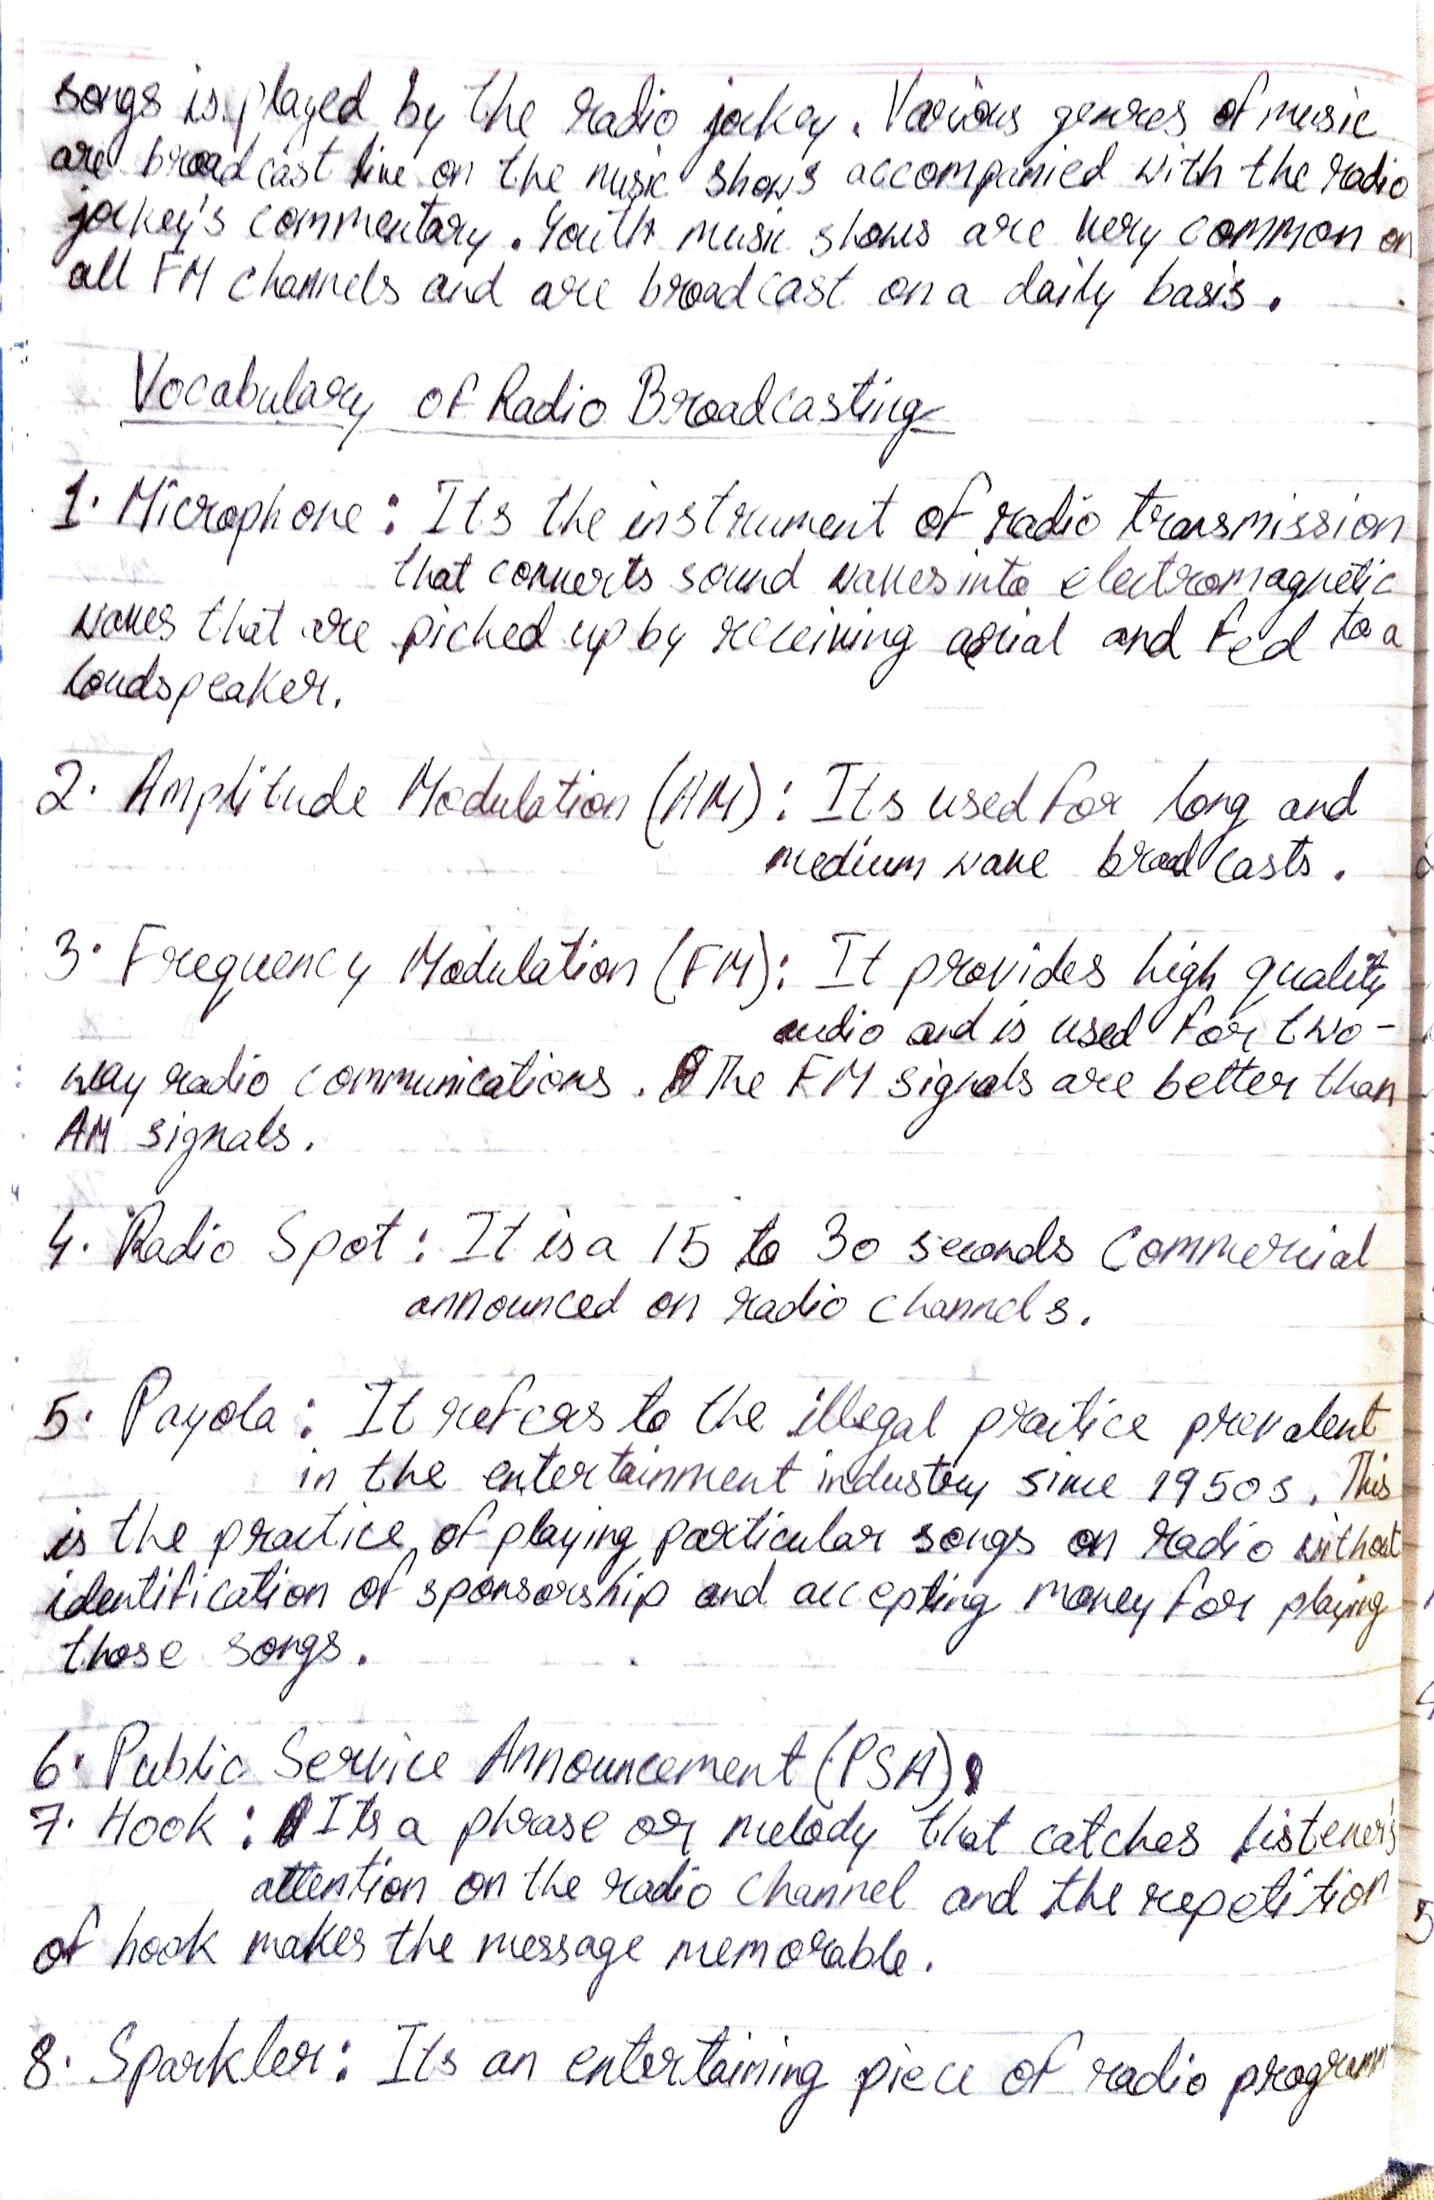 songs is played by the radio jockey. Various genres of music
are broadcast live on the music shows accompanied with the radio
jockey's commentary. Youth music shows are very common on
all FM channels and are broadcast on a daily basis.
Vocabulary of Radio Broadcasting
1. Microphone: Its the instrument of radio transmission
that converts sound waves into electromagnetic
waves that are picked up by receiving aerial and fed to a
loudspeaker.
2. Amplitude Modulation (AM): Its used for long and
medium wave broadcasts.
3. Frequency Modulation (FM): It provides high quality
audio and is used for two-
way radio communications. The FM signals are better than
AM signals.
4. Radio Spot: It is a 15 to 30 seconds Commercial
announced on radio channels.
5. Payola: It refers to the illegal practice prevalent
in the entertainment industry since 1950s. This
is the practice of playing particular songs on radio without
identification of sponsorship and accepting money for playing
those songs.
6. Public Service Announcement (PSA)
7. Hook: Its a phrase or melody that catches listener's
attention on the radio channel and the repetition
of hook makes the message memorable.
8. Sparkler: Its an entertaining piece of radio programm